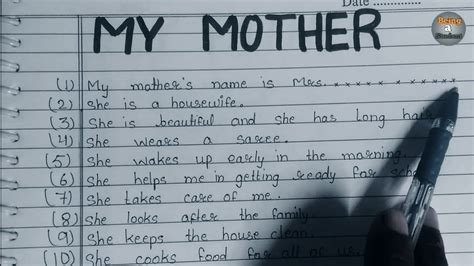 Date ..............
Being
a
Student
MY MOTHER
(1) My mother's name is Mrs. xxxxx xxxxxx
(2) She is a housewife.
(3) She is beautiful and she has long hair.
(4) She wears a saree.
(5) She wakes up early in the morning.
(6) She helps me in getting ready for
(7) She takes care of me.
(8) She looks after the family.
(9) She keeps the house clean.
(10) She cooks food for all of us.